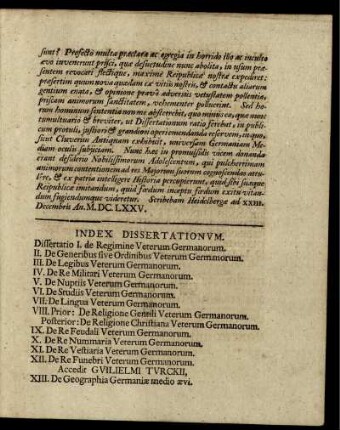 sunt? Profectò multa præclara ac egregia in horrido illo ac inculto
ævo invenerunt prisci, quæ desuetudine nunc abolita, in usum præ-
sentem revocari flectique, maximè Reipublicæ nostræ expediret:
præsertim quum novia quædam ex vitiis nostris, & contactu aliarum
gentium enata, & opinione pravâ adversus vetustatem pollentia,
priscam animorum sanctitatem, vehementer polluerint. Sed ho-
rum hominum sententia non me absterrebit, quo minus ea, quæ nunc
tumultuario & breviter, ut Dissertationum ratio ferebat, in publi-
cum protuli, justiori & grandiori operi emendanda reservem, in quo,
sicut Cluverius Antiquam exhibuit, universam Germaniam Me-
diam oculis subjiciam. Nunc hæc in promulside vicem donanda
erant desiderio Nobilissimorum Adolescentum, qui pulcherrimam
animorum contentionem ad res Majorum suorum cognoscendas attu-
lêre, & ex patria intelligere Historia percupierunt, quid sibi suæque
Reipublicæ imitandum, quid fœdum inceptu fœdum exitu vitan-
dum fugiendumque videretur. Scribebam Heidelbergæ ad XXIII.
Decembris An. M.DC.LXXV.
INDEX DISSERTATIONVM.
Dissertatio I. de Regimine Veterum Germanorum.
II. De Generibus sive Ordinibus Veterum Germanorum.
III. De Legibus Veterum Germanorum.
IV. De Re Militari Veterum Germanorum.
V. De Nuptiis Veterum Germanorum.
VI. De Studiis Veterum Germanorum.
VII. De Lingua Veterum Germanorum.
VIII. Prior: De Religione Gentili Veterum Germanorum.
Posterior: De Religione Christiana Veterum Germanorum.
IX. De Re Feudali Veterum Germanorum.
X. De Re Nummaria Veterum Germanorum.
XI. De Re Vestiaria Veterum Germanorum.
XII. De Re Funebri Veterum Germanorum.
Accedit GVILIELMI TVRCKII,
XIII. De Geographia Germaniæ medio ævi.